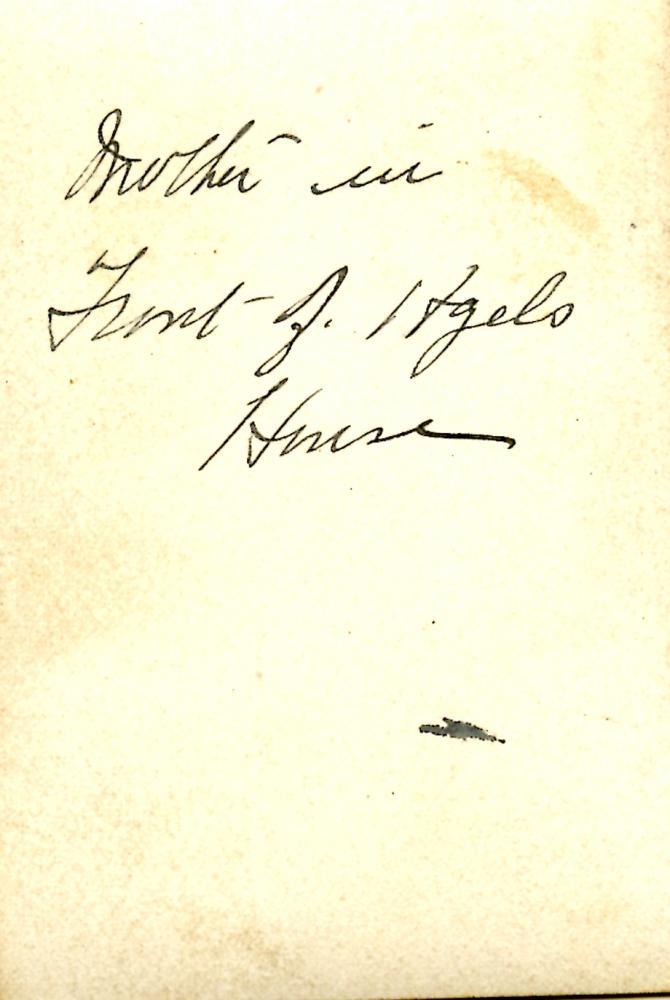 Mother in
Front of
House